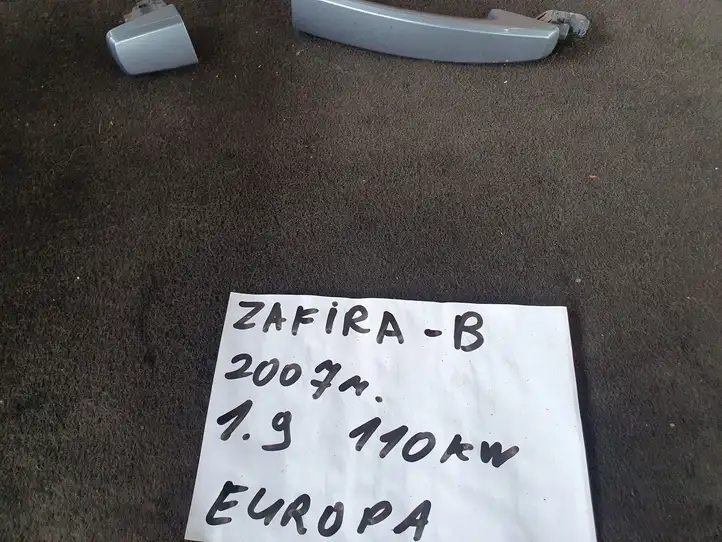 ZAFIRA - B
2007м.
1.9 110KW
EUROPA